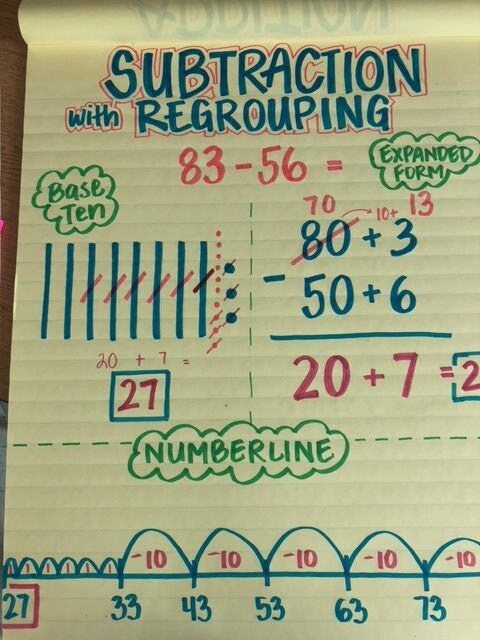 ADDITION
SUBTRACTION
with REGROUPING
83-56 =
EXPANDED
FORM
Base
Ten
70 10+ 13
80 + 3
- 50 + 6
20 + 7 = 2
20 + 7 =
27
NUMBERLINE
-10 -10 -10 -10 -10
27 33 43 53 63 73